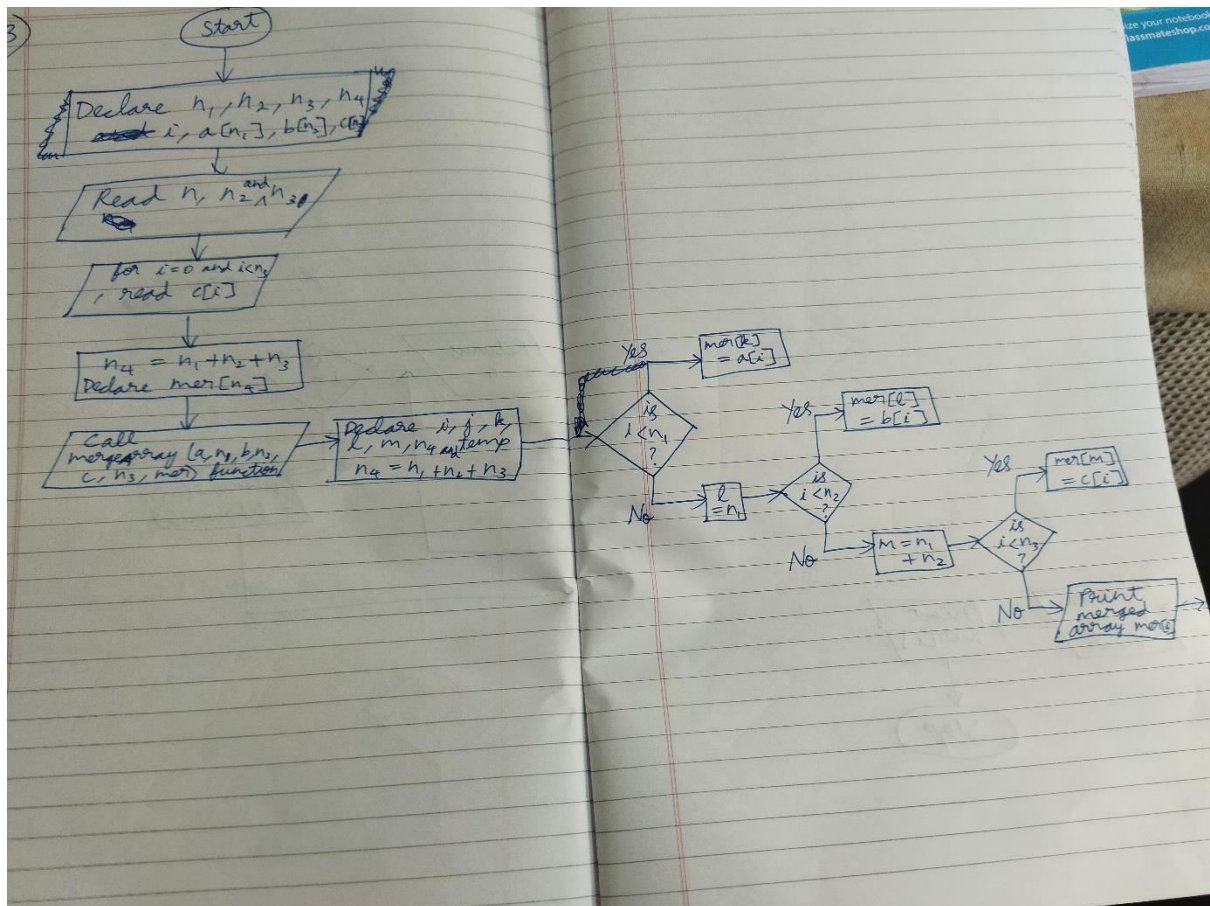 3)
Start
Declare n1, n2, n3, n4
i, a[n1], b[n2], c[n3]
Read n, n2 and n3
for i=0 and i<n3
, read c[i]
n4 = n1+n2+n3
Declare mer[n4]
Call
mergearray (a, n1, b, n2,
c, n3, mer) function
Declare i, j, k,
l, m, n4 and temp
n4 = n1+n2+n3
is
i<n1
?
Yes
mer[k]
= a[i]
No
l
= n1
is
i<n2
?
Yes
mer[l]
= b[i]
No
m = n1
+ n2
is
i<n3
?
Yes
mer[m]
= c[i]
No
Print
merged
array mer[i]
ize your notebook
lassmateshop.co